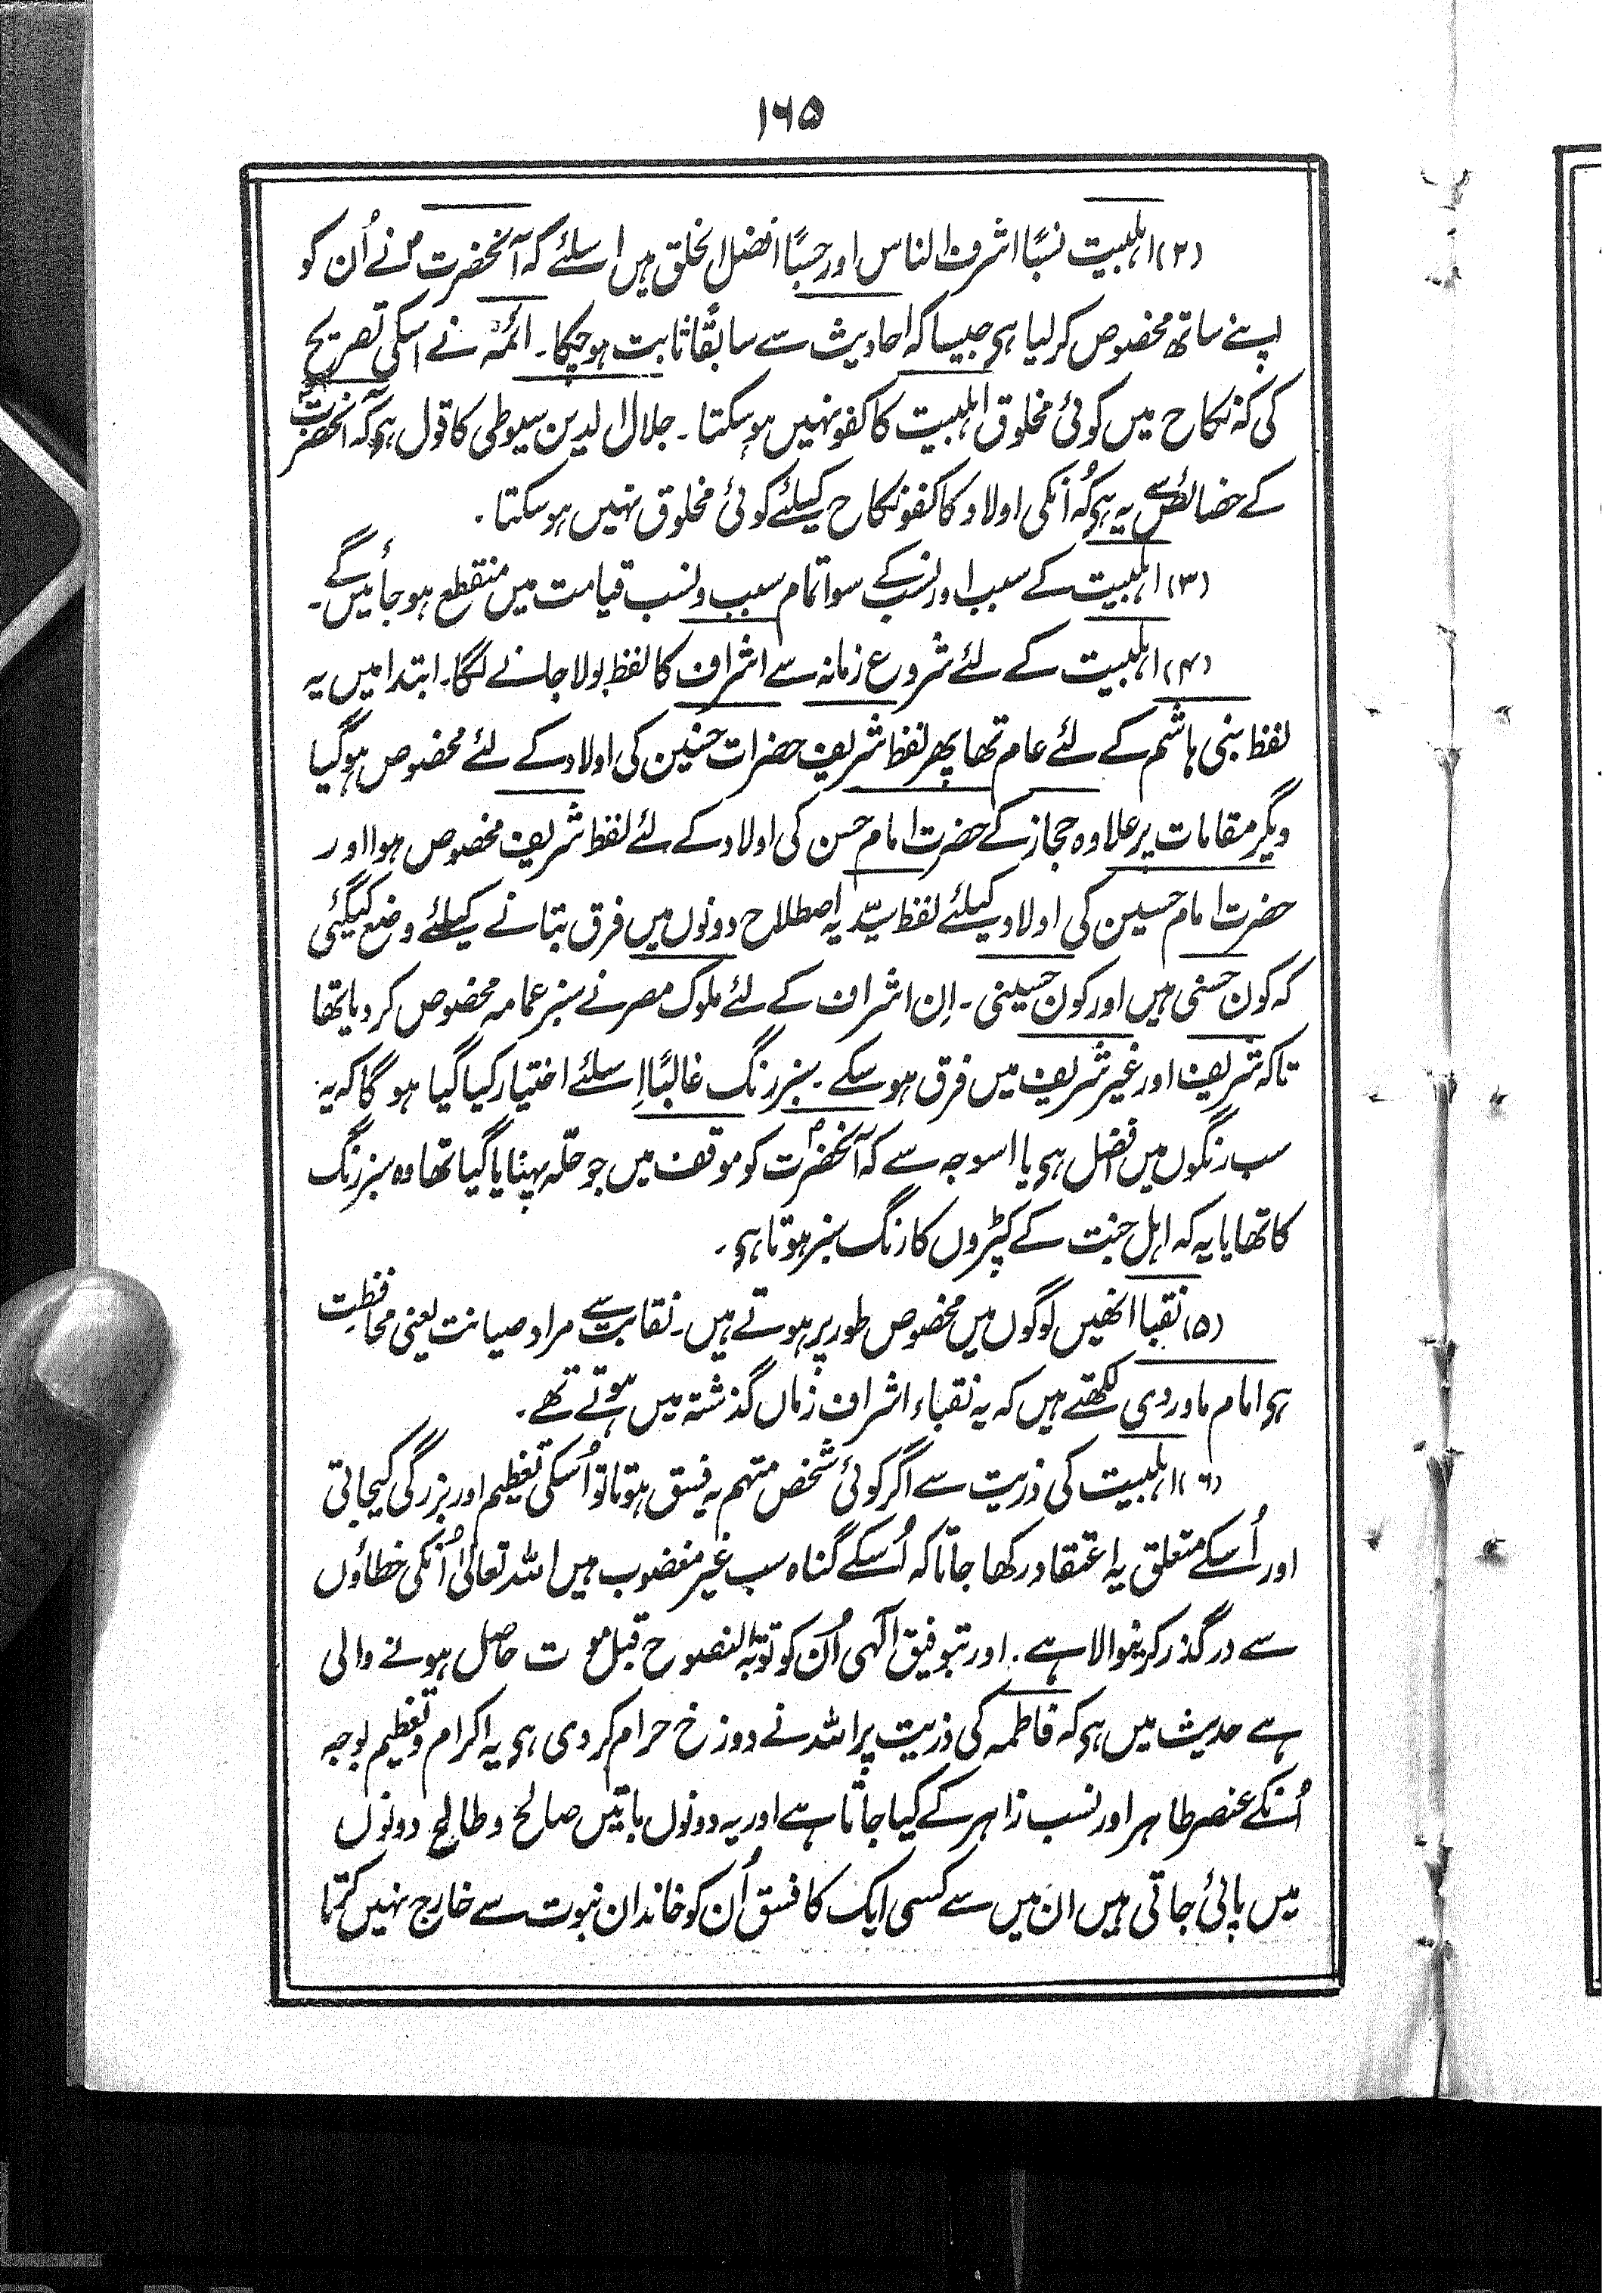 ۱۶۵
(۲) اہلبیت نسبًا اشرف الناس اور حسبًا افضل الخلق ہیں اسلئے کہ آنحضرتؐ نے اُن کو
اپنے ساتھ مخصوص کرلیا ہی جیسا کہ احادیث سے سابقًا ثابت ہوچکا۔ ائمہ نے اسکی تصریح
کی کہ نکاح میں کوئی مخلوق اہلبیت کا کفو نہیں ہوسکتا۔ جلال الدین سیوطی کا قول ہی کہ آنحضرتؐ
کے خصائص سے یہ ہی کہ اُنکی اولاد کا کفو نکاح کیلئے کوئی مخلوق نہیں ہوسکتا۔
(۳) اہلبیت کے سبب اور نسب کے سوا تمام سبب و نسب قیامت میں منقطع ہوجائیں گے۔
(۴) اہلبیت کے لئے شروع زمانہ سے اشراف کا لفظ بولا جانے لگا۔ ابتدا میں یہ
لفظ بنی ہاشم کے لئے عام تھا پھر لفظ شریف حضرات حسنین کی اولاد کے لئے مخصوص ہوگیا
دیگر مقامات پر علاوہ حجاز کے حضرت امام حسن کی اولاد کے لئے لفظ شریف مخصوص ہوا اور
حضرت امام حسین کی اولاد کیلئے لفظ سیّد یہ اصطلاح دونوں میں فرق بتانے کیلئے وضع کیگئی
کہ کون حسنی ہیں اور کون حسینی۔ اِن اشراف کے لئے ملوک مصر نے سبز عمامہ مخصوص کردیا تھا
تاکہ شریف اور غیر شریف میں فرق ہوسکے۔ سبز رنگ غالبًا اِسلئے اختیار کیا گیا ہوگا کہ یہ
سب رنگوں میں افضل ہی یا اسوجہ سے کہ آنحضرتؐ کو موقف میں جو حلّہ پہنایا گیا تھا وہ سبز رنگ
کا تھا یا یہ کہ اہل جنت کے کپڑوں کا رنگ سبز ہوتا ہی۔
(۵) نقبا انھیں لوگوں میں مخصوص طور پر ہوتے ہیں۔ نقابت سے مراد صیانت یعنی محافظت
ہی امام ماوردی لکھتے ہیں کہ یہ نقباء اشراف زماں گذشتہ میں ہوتے تھے۔
(۶) اہلبیت کی ذریت سے اگر کوئی شخص متہم بہ فسق ہوتا تو اُسکی تعظیم اور بزرگی کیجاتی
اور اُسکے متعلق یہ اعتقاد رکھا جاتا کہ اُسکے گناہ سب غیر مغضوب ہیں اللہ تعالیٰ اُنکی خطاؤں
سے درگذر کرینوالا ہے۔ اور بتوفیق آلہی اُن کو توبۃ النصوح قبل موت حاصل ہونے والی
ہے حدیث میں ہی کہ فاطمہ کی ذریت پر اللہ نے دوزخ حرام کردی ہی یہ اکرام و تعظیم بوجہ
اُنکے عنصر طاہر اور نسب زاہر کے کیا جاتا ہے اور یہ دونوں باتیں صالح و طالح دونوں
میں پائی جاتی ہیں ان میں سے کسی ایک کا فسق اُن کو خاندان نبوت سے خارج نہیں کرتا